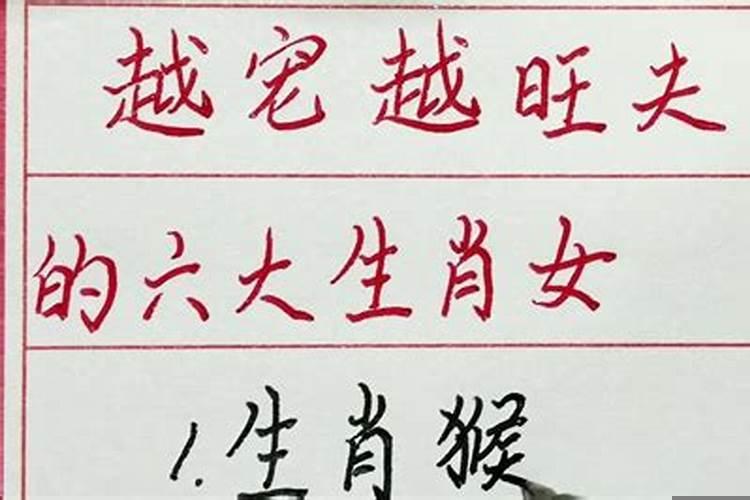 越宠越旺夫
的六大生肖女
1.生肖猴